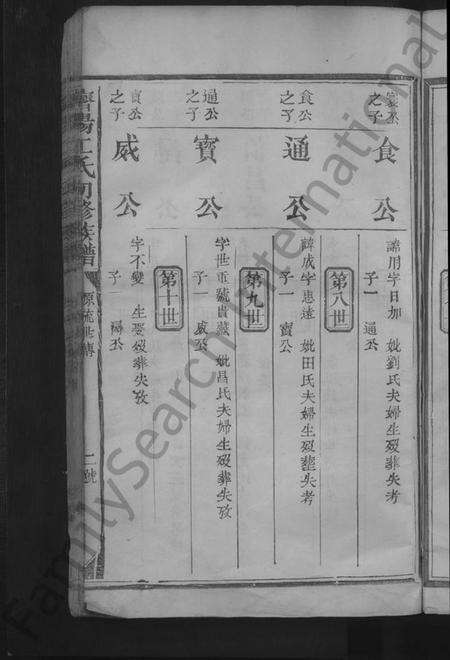 之子
食公
諱用字日加 妣劉氏夫婦生歿葬失考
子一 通公
第八世
食公
之子
通公
諱成字惠遠 妣田氏夫婦生歿葬失考
子一 寶公
第九世
通公
之子
寶公
字世重號貴藏 妣昌氏夫婦生歿葬失攷
子一 威公
第十世
寶公
之子
威公
字不變 生娶歿葬失攷
子一 陽公
氏初修族譜
源流世傳
二號
FamilySearch International